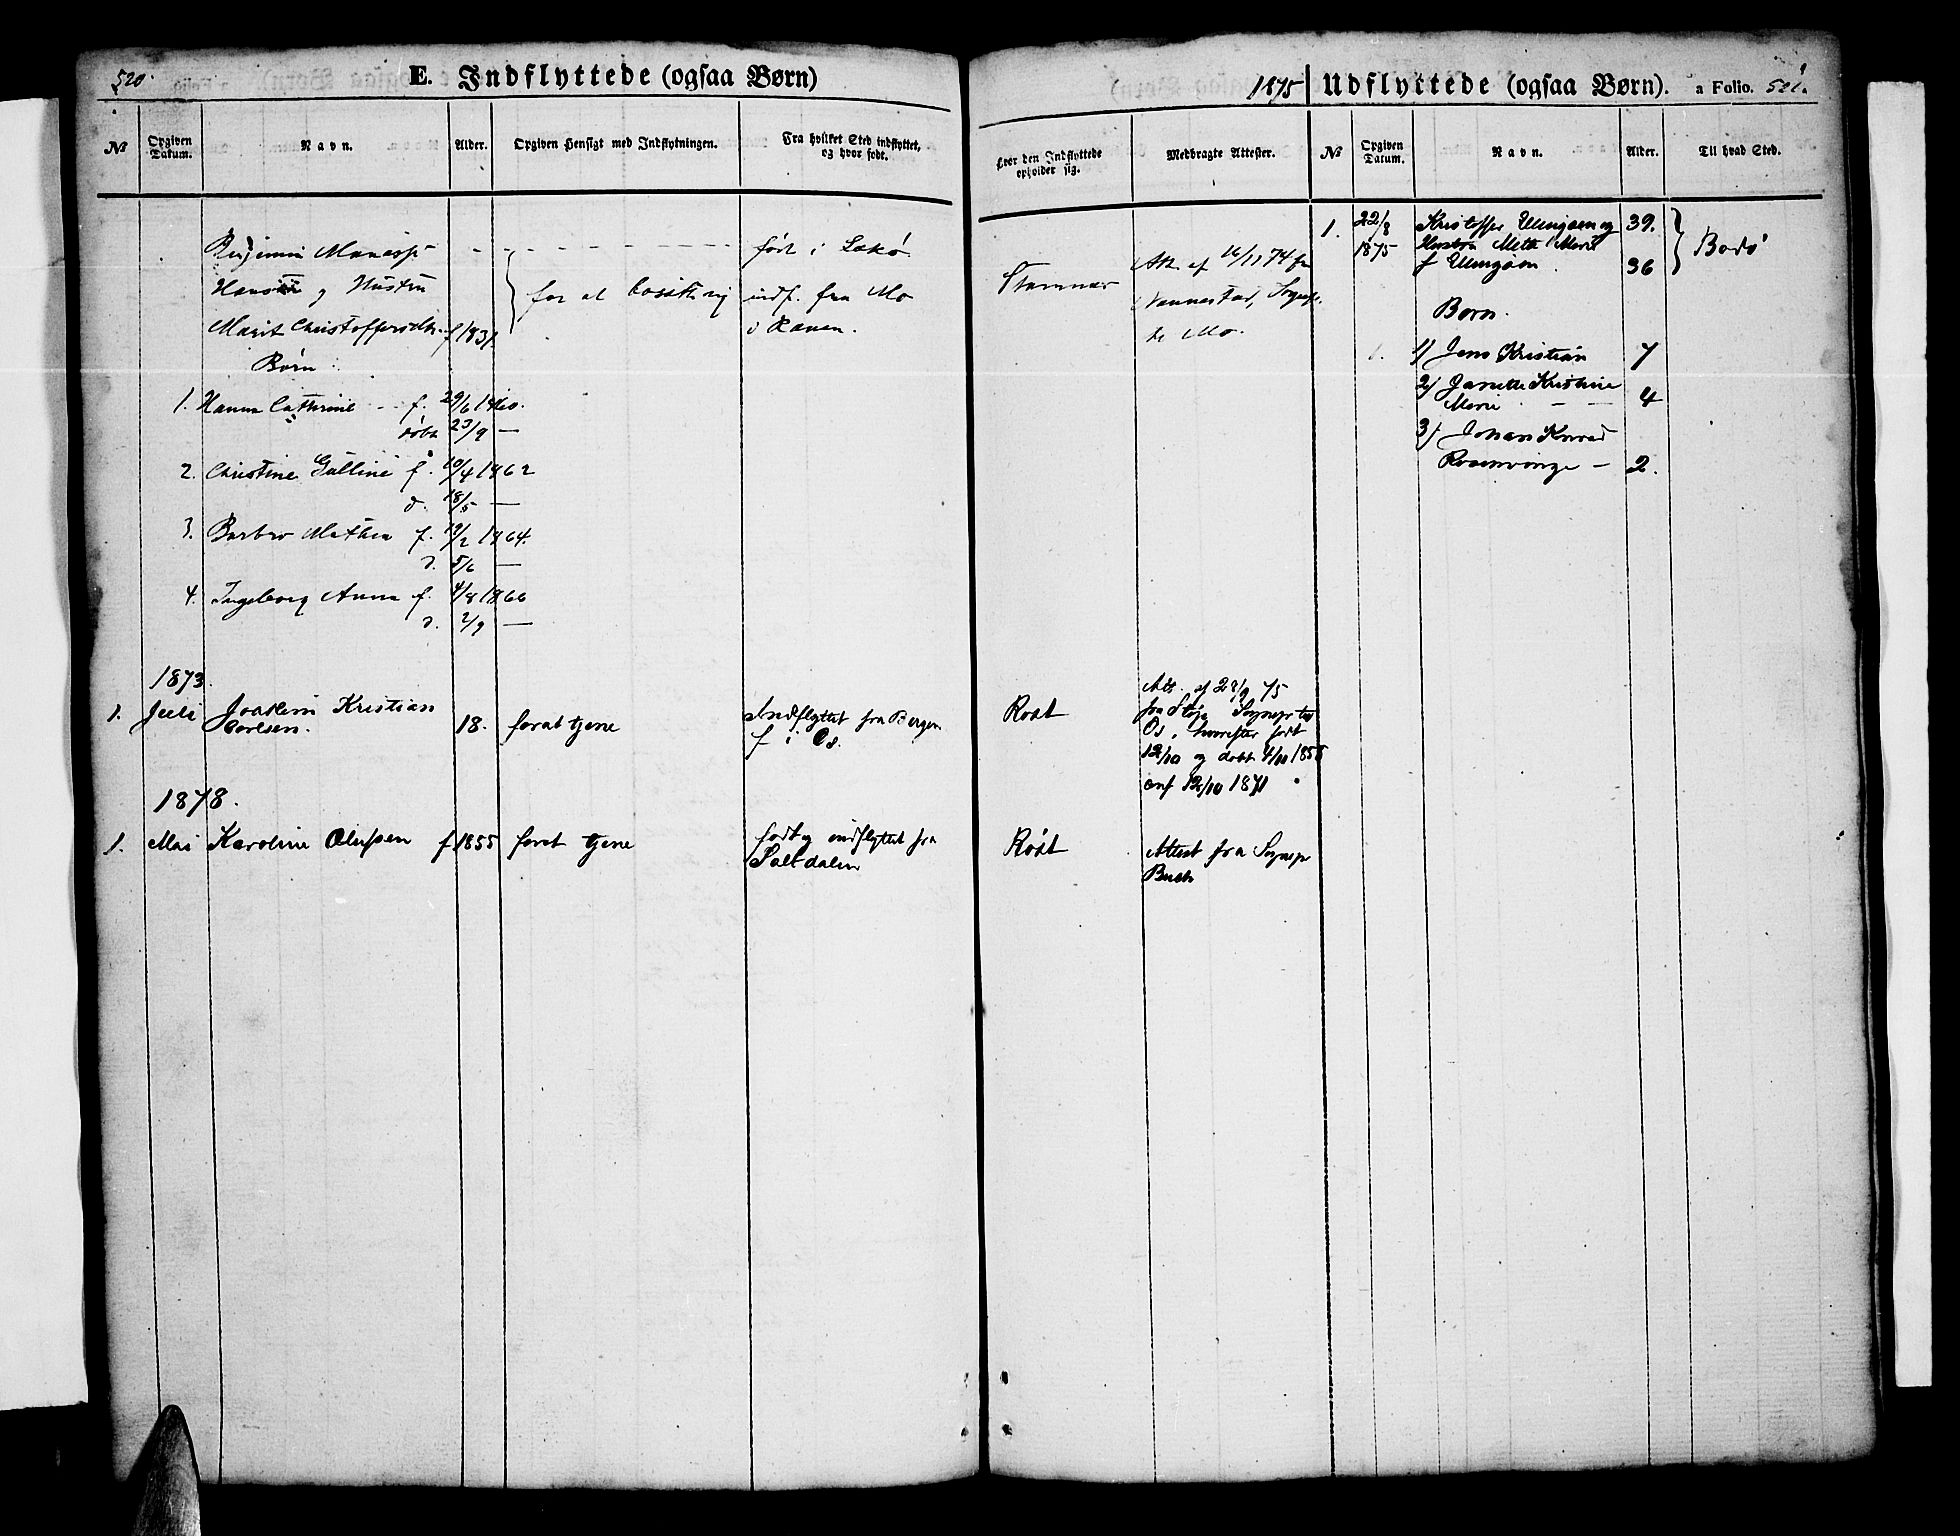 520
E. Indflyttede (ogsaa Børn)
No
Opgiven Datum.
Navn.
Alder.
Opgiven Hensigt med Indflytningen.
Fra hvilket Sted indflyttet, og hvor født.
Benjamin
født i
Hansen og Hustru
for at bosætte sig
indf. fra Mo
Marit Christoffersdtr. f 1831.
i Ranen.
Børn:
1. Hanna Cathrine f. 29/6 1860.
døbt 23/9 —
2. Christine Gulline f. 10/4 1862
d. 18/5 —
3. Barbro Mathea f. 19/2 1864.
d. 5/6 —
4. Ingeborg Anna f. 4/8 1866
d. 2/9 —
1873.
1. Juli Joakim Kristian 18. forat tjene Indflyttet fra Bergen
Carlsen. f i Os.
1878.
1. Mai Karoline Olufsen f 1855 forat tjene født og indflyttet fra
Saltdalen
1875 Udflyttede (ogsaa Børn). a Folio. 521.
Hvor den Indflyttede opholder sig.
Medbragte Attester.
No
Opgiven Datum.
Navn.
Alder.
Til hvad Sted.
Stamnær
Att. af 16/11 74 fra
Sognepr.
til Mo.
Røst
Att. af 28/9 75
fra Sognepr til
Os, hvorefter født
12/10 og døbt 1855
conf 1871
Røst
Attest fra Sognepr
1. 22/8 Kristoffer Ellingsen og 39.
1875 Hustru Mette Marit
f Ellingsen. 36
Bodø
Børn.
1) Jens Kristian 7
2) Janette Kristine
Marie — — 4
3) Johan Konrad
Rosenvinge — 2.